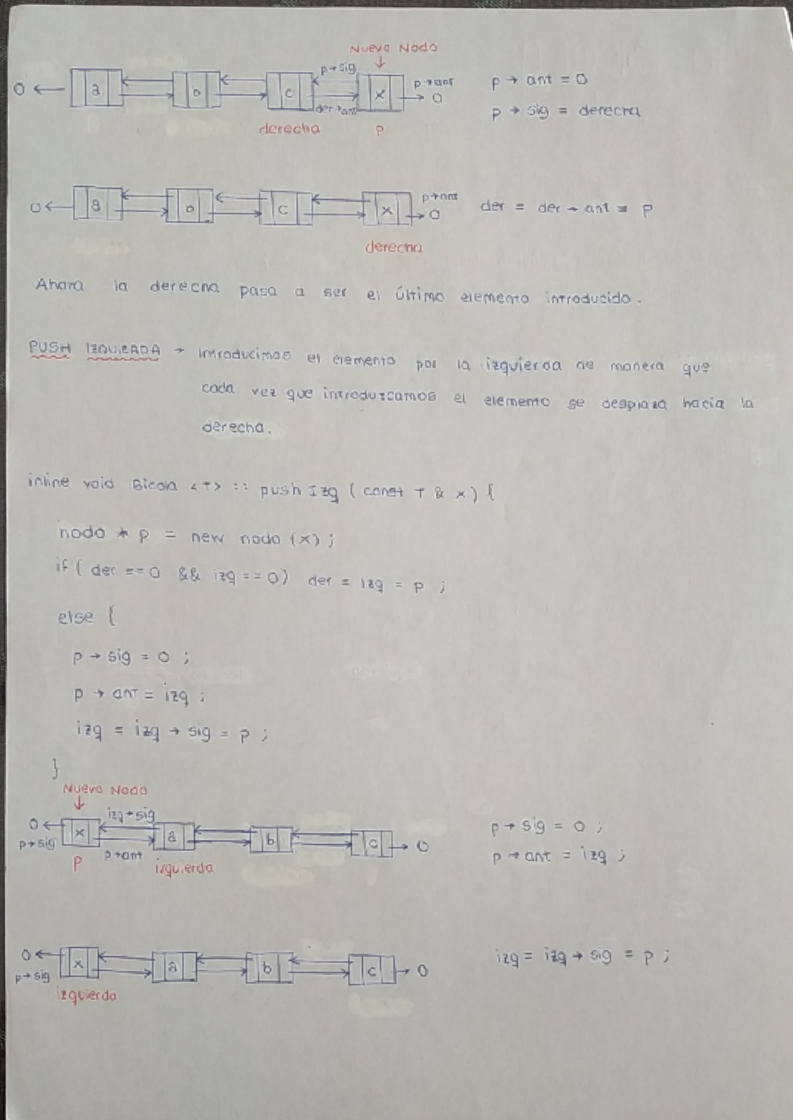 Nuevo Nodo
0 a b c x 0
p→sig p→ant
der→ant
derecha p
p → ant = 0
p → sig = derecha
0 a b c x 0
p→ant
derecha
der = der → ant = p
Ahora la derecha pasa a ser el último elemento introducido.
PUSH IZQUIERDA → Introducimos el elemento por la izquierda de manera que
cada vez que introduzcamos el elemento se desplaza hacia la
derecha.
inline void Bicola <T> :: push Izq ( const T & x ) {
nodo * p = new nodo (x) ;
if ( der == 0 && izq == 0 ) der = izq = p ;
else {
p → sig = 0 ;
p → ant = izq ;
izq = izq → sig = p ;
}
Nuevo Nodo
izq→sig
0 x a b c 0
p→sig p→ant
p izquierda
p → sig = 0 ;
p → ant = izq ;
0 x a b c 0
p→sig
izquierda
izq = izq → sig = p ;